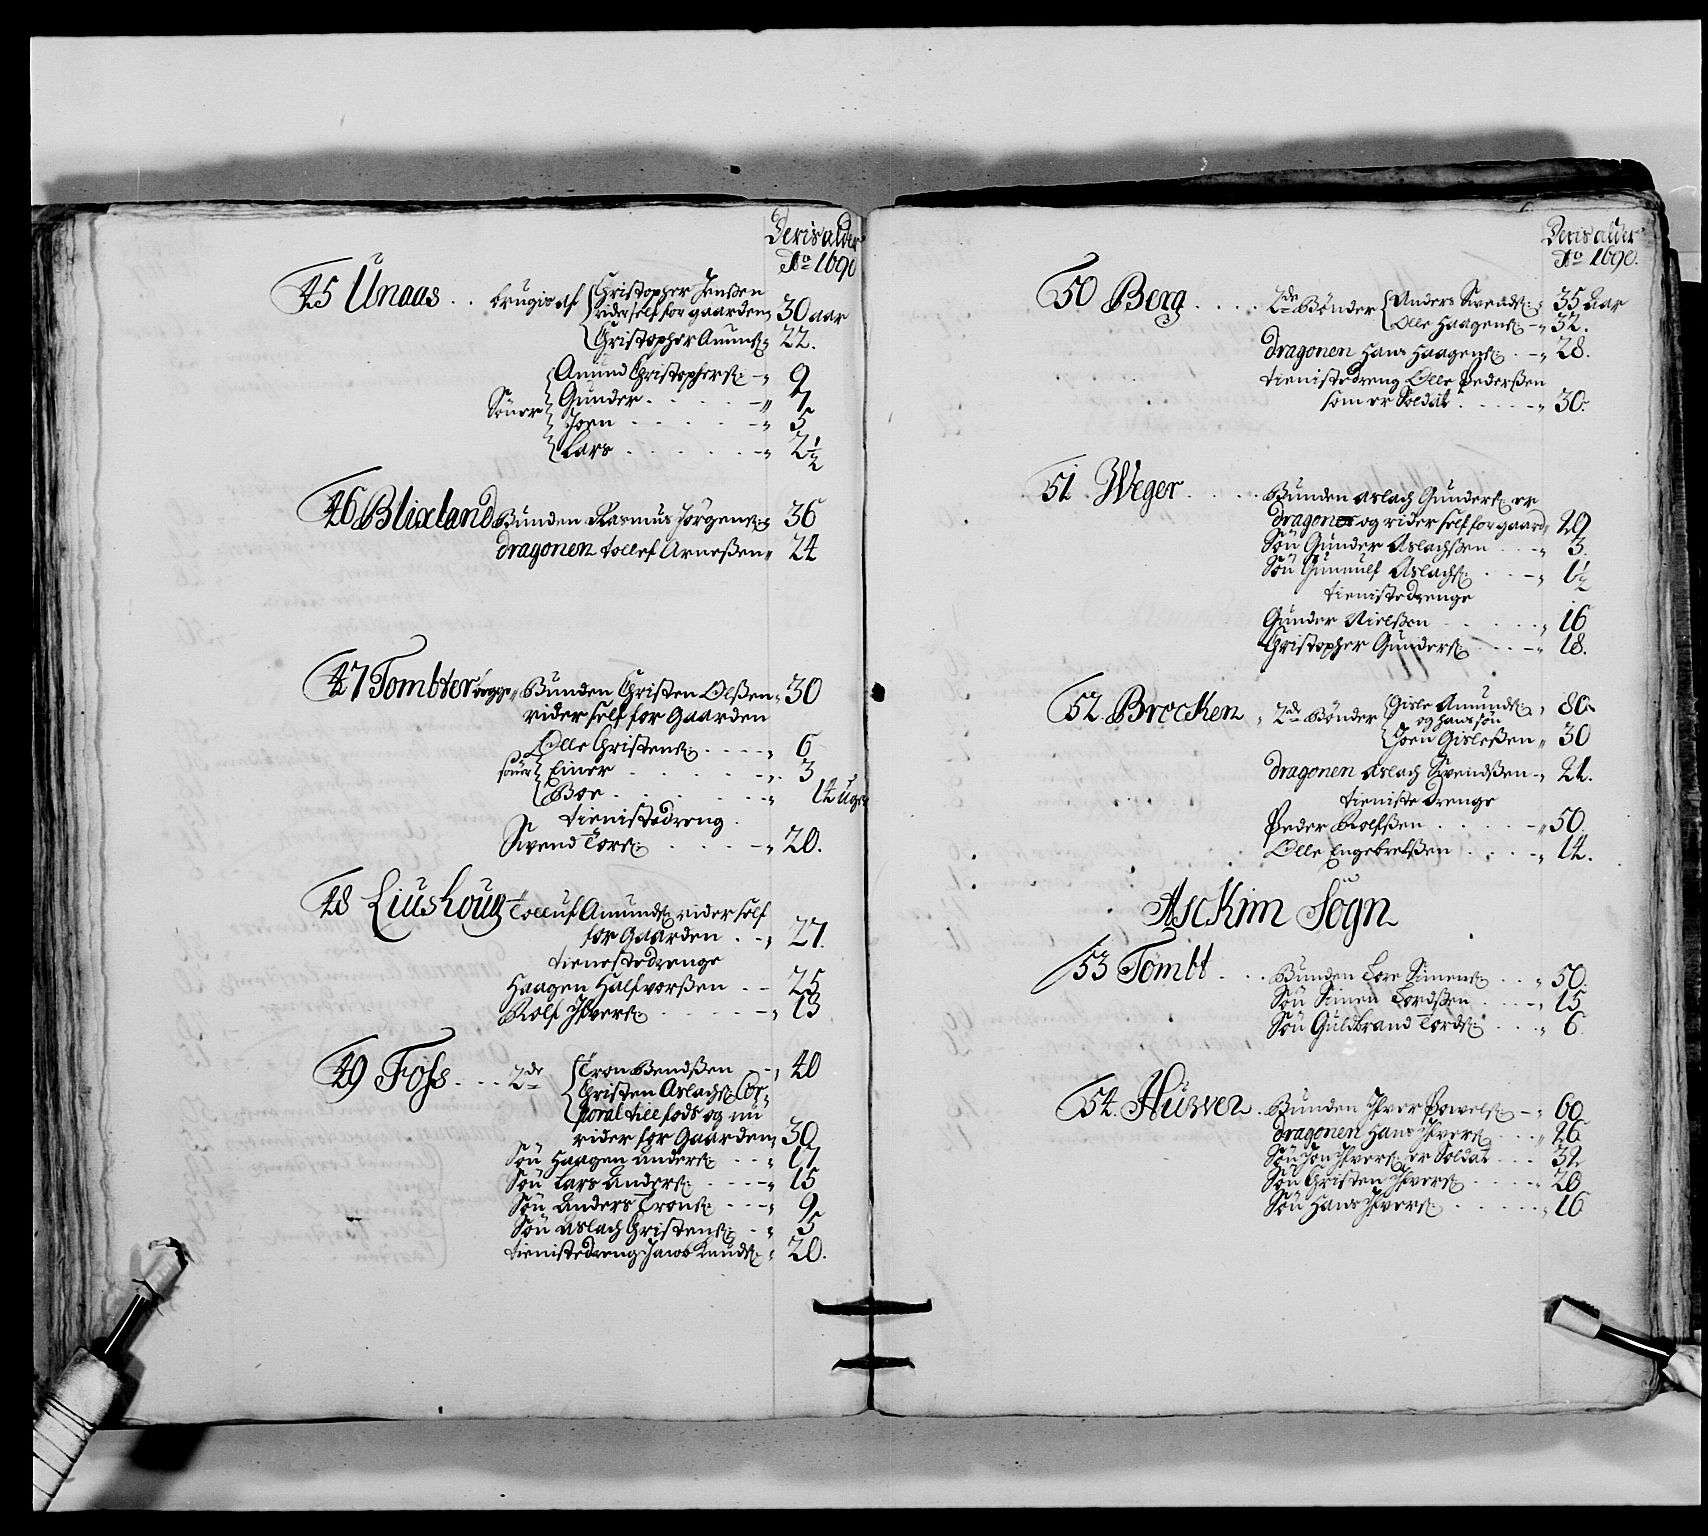 Deris alder
Ao 1690
45 Unaas . . brugis af Christopher Jenßen
rider self for gaarden 30 aar
Christopher Amundß: 22.
Amund Christopherß: 9
Sønner Gunder 7
Joen 5
Lars 2½
46 Blixland Bunden Rasmus Jørgenß: 36
dragonen Tollef Arneßen 24
47 Tombter begge Bunden Christen Olßen 30
rider self for Gaarden
Olle Christenß: 6
sønner Einer 3
Boe 14 uger
tienistedreng
Svend Torß: 20.
48 Liushoug Tolluf Amundß: rider self
for Gaarden 27.
tienestedrenge
Haagen Halfvorßen 25
Rolf Ifverß: 13
49 Foss 2de Tron Bendßen 40
Christen Aslachß: Cor-
poral till fods og nu
rider for Gaarden 30
Søn Haagen Anderß: 17
Søn Lars Anderß: 15
Søn Anders Tronß: 9
Søn Aslach Christenß: 5
tienistedreng Jacob Knudß: 20.
Deris alder
Ao 1690.
50 Berg 2de Bønder Anders Svendß: 35 aar
Olle Haagenß: 32.
dragonen Hans Haagenß: 28.
tienistedreng Olle Pederßen
som er Soldat 30.
51 Weger Bunden Aslach Gunderß: er
dragoner og rider self for gaard 29
Søn Gunder Aslachßen 3.
Søn Gunnulf Aslachß: 1½
tienistedrenge
Gunder Nielßen 16
Christopher Gunderß: 18.
52. Brocken 2de Bønder Gisle Amundß: 80
og hans søn
Joen Gisleßen 30
dragonen Aslach Svendßen 21.
tieniste drenge
Peder Rolfßen 50
Olle Engebretßen 14.
Asckim Sogn
53 Tombt Bunden Tore Simenß: 50.
Søn Simen Tordßen 15
Søn Guldbrand Tordß: 6.
54. Huuer Bunden Ifver Powelß: 60
dragonen Hans Ifverß: 26
Søn Jon Ifverß: er Soldat 32
Søn Christen Ifverß: 20
Søn Hans Ifverß: 16